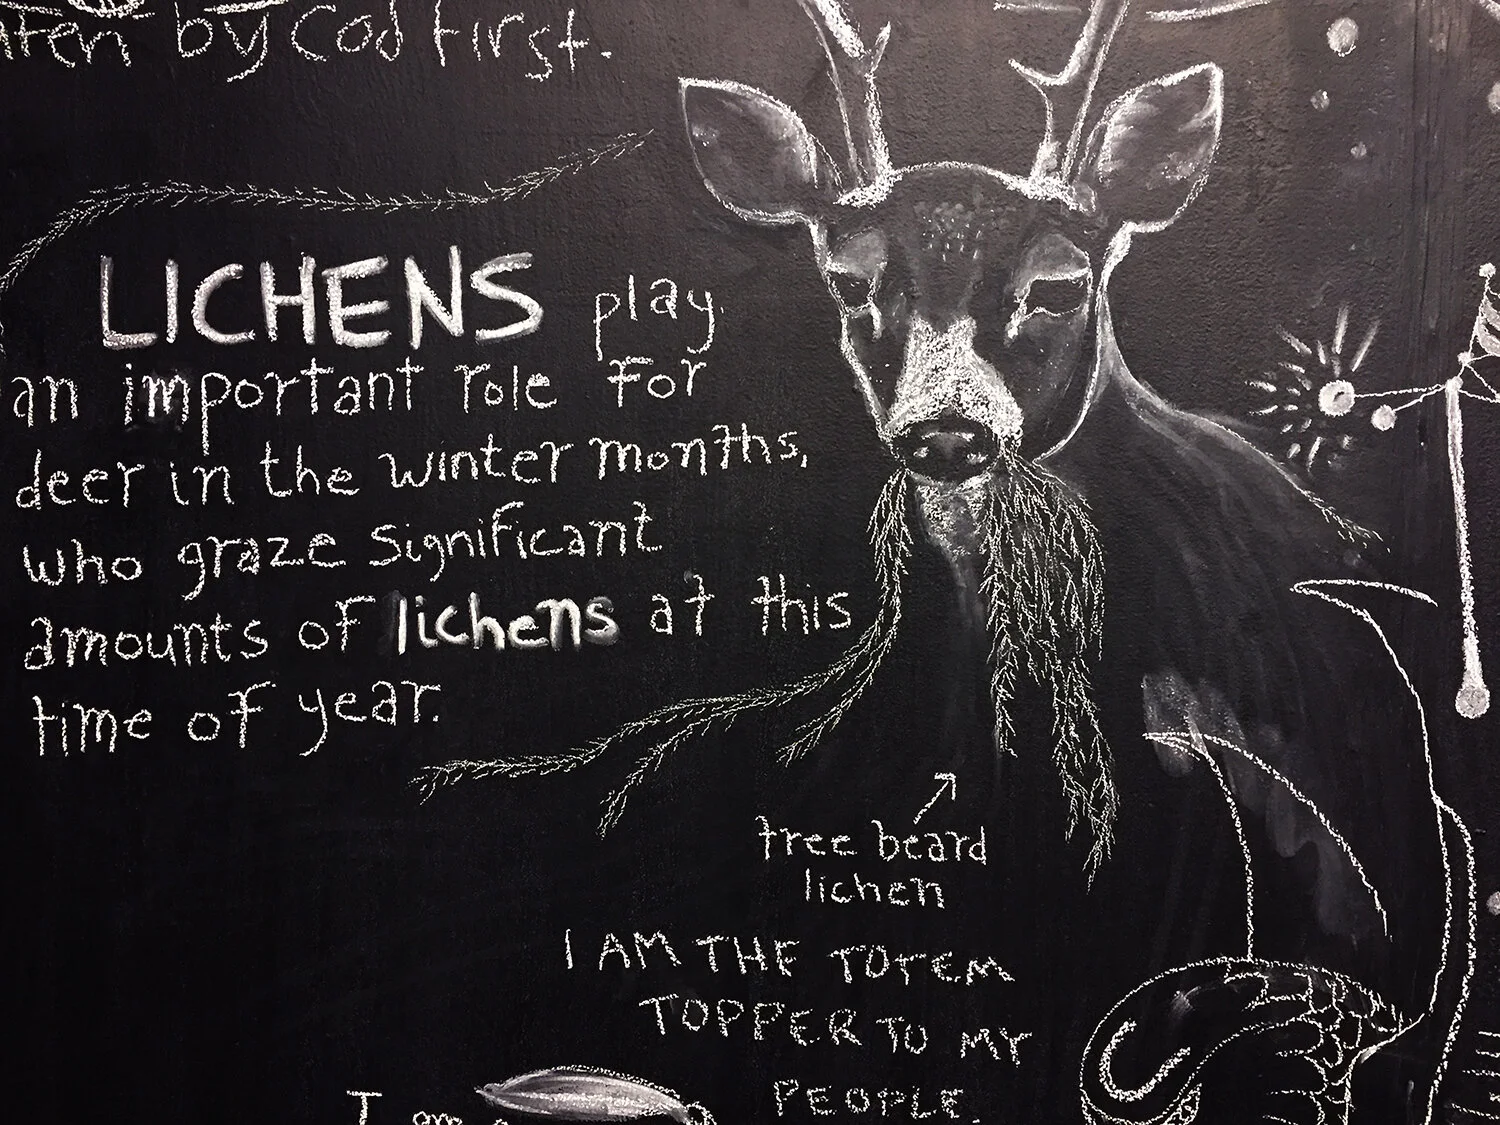 by Cod first.
LICHENS play
an important role for
deer in the winter months,
who graze significant
amounts of lichens at this
time of year.
tree beard
lichen
I AM THE TOTEM
TOPPER TO MY
PEOPLE.
I am